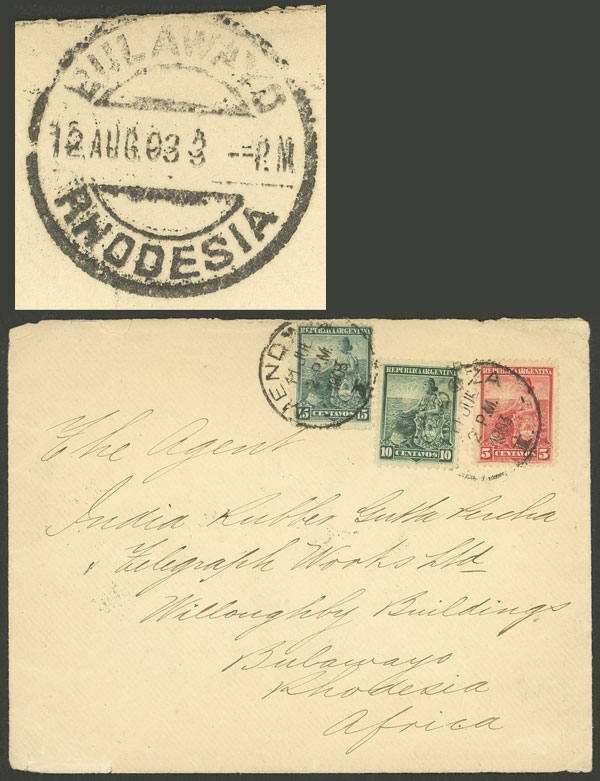 BULAWAYO
12 AUG.03 3 -- P.M
RHODESIA
REPUBLICA ARGENTINA
15 CENTAVOS 15
REPUBLICA ARGENTINA
10 CENTAVOS 10
REPUBLICA ARGENTINA
5 CENTAVOS 5
MENDOZA
JUL
2 P.M.
1903
2 P.M.
1903
The Agent
India Rubber Gutta Percha
& Telegraph Works Ltd
Willoughby Buildings
Bulawayo
Rhodesia
Africa